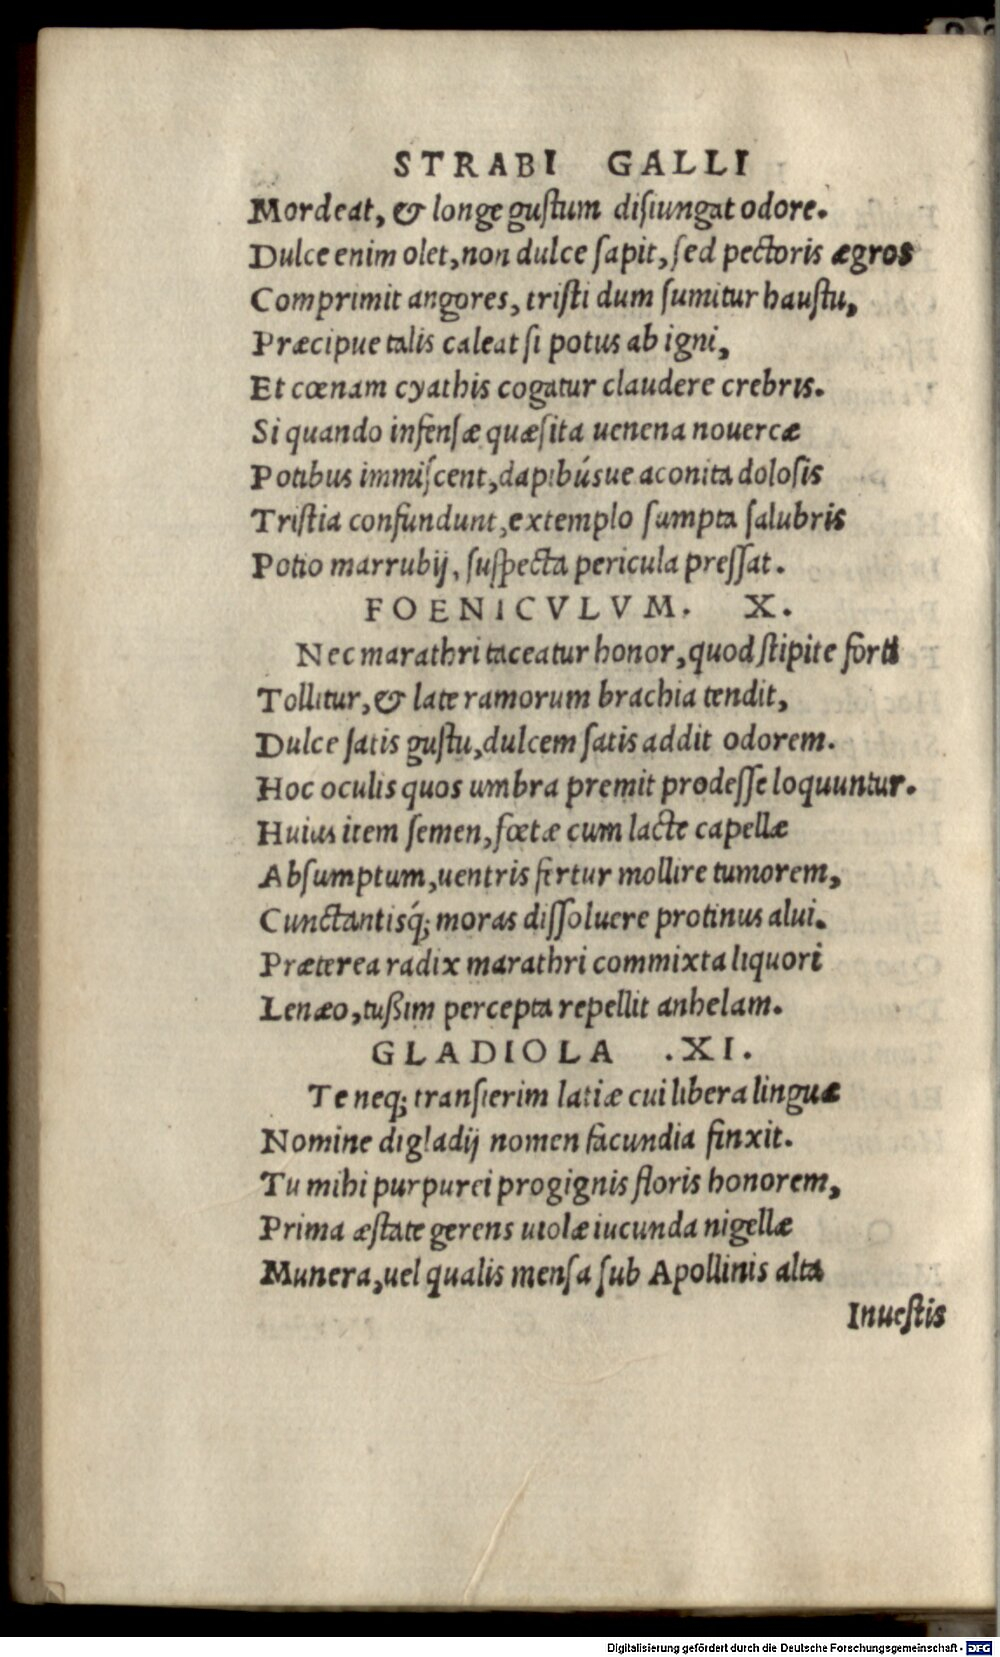 STRABI GALLI
Mordeat, & longe gustum disiungat odore.
Dulce enim olet, non dulce sapit, sed pectoris ægros
Comprimit angores, tristi dum sumitur haustu,
Præcipue talis caleat si potus ab igni,
Et cœnam cyathis cogatur claudere crebris.
Si quando infensæ quæsita uenena nouercæ
Potibus immiscent, dapibúsue aconita dolosis
Tristia confundunt, extemplo sumpta salubris
Potio marrubij, suspecta pericula pressat.
FOENICVLVM. X.
Nec marathri taceatur honor, quod stipite forti
Tollitur, & late ramorum brachia tendit,
Dulce satis gustu, dulcem satis addit odorem.
Hoc oculis quos umbra premit prodesse loquuntur.
Huius item semen, fœtæ cum lacte capellæ
Absumptum, uentris fertur mollire tumorem,
Cunctantisq́; moras dissoluere protinus alui.
Præterea radix marathri commixta liquori
Lenæo, tußim percepta repellit anhelam.
GLADIOLA .XI.
Te neq; transierim latiæ cui libera linguæ
Nomine digladij nomen facundia finxit.
Tu mihi purpurei progignis floris honorem,
Prima æstate gerens uiolæ iucunda nigellæ
Munera, uel qualis mensa sub Apollinis alta
Inuestis
Digitalisierung gefördert durch die Deutsche Forschungsgemeinschaft - DFG